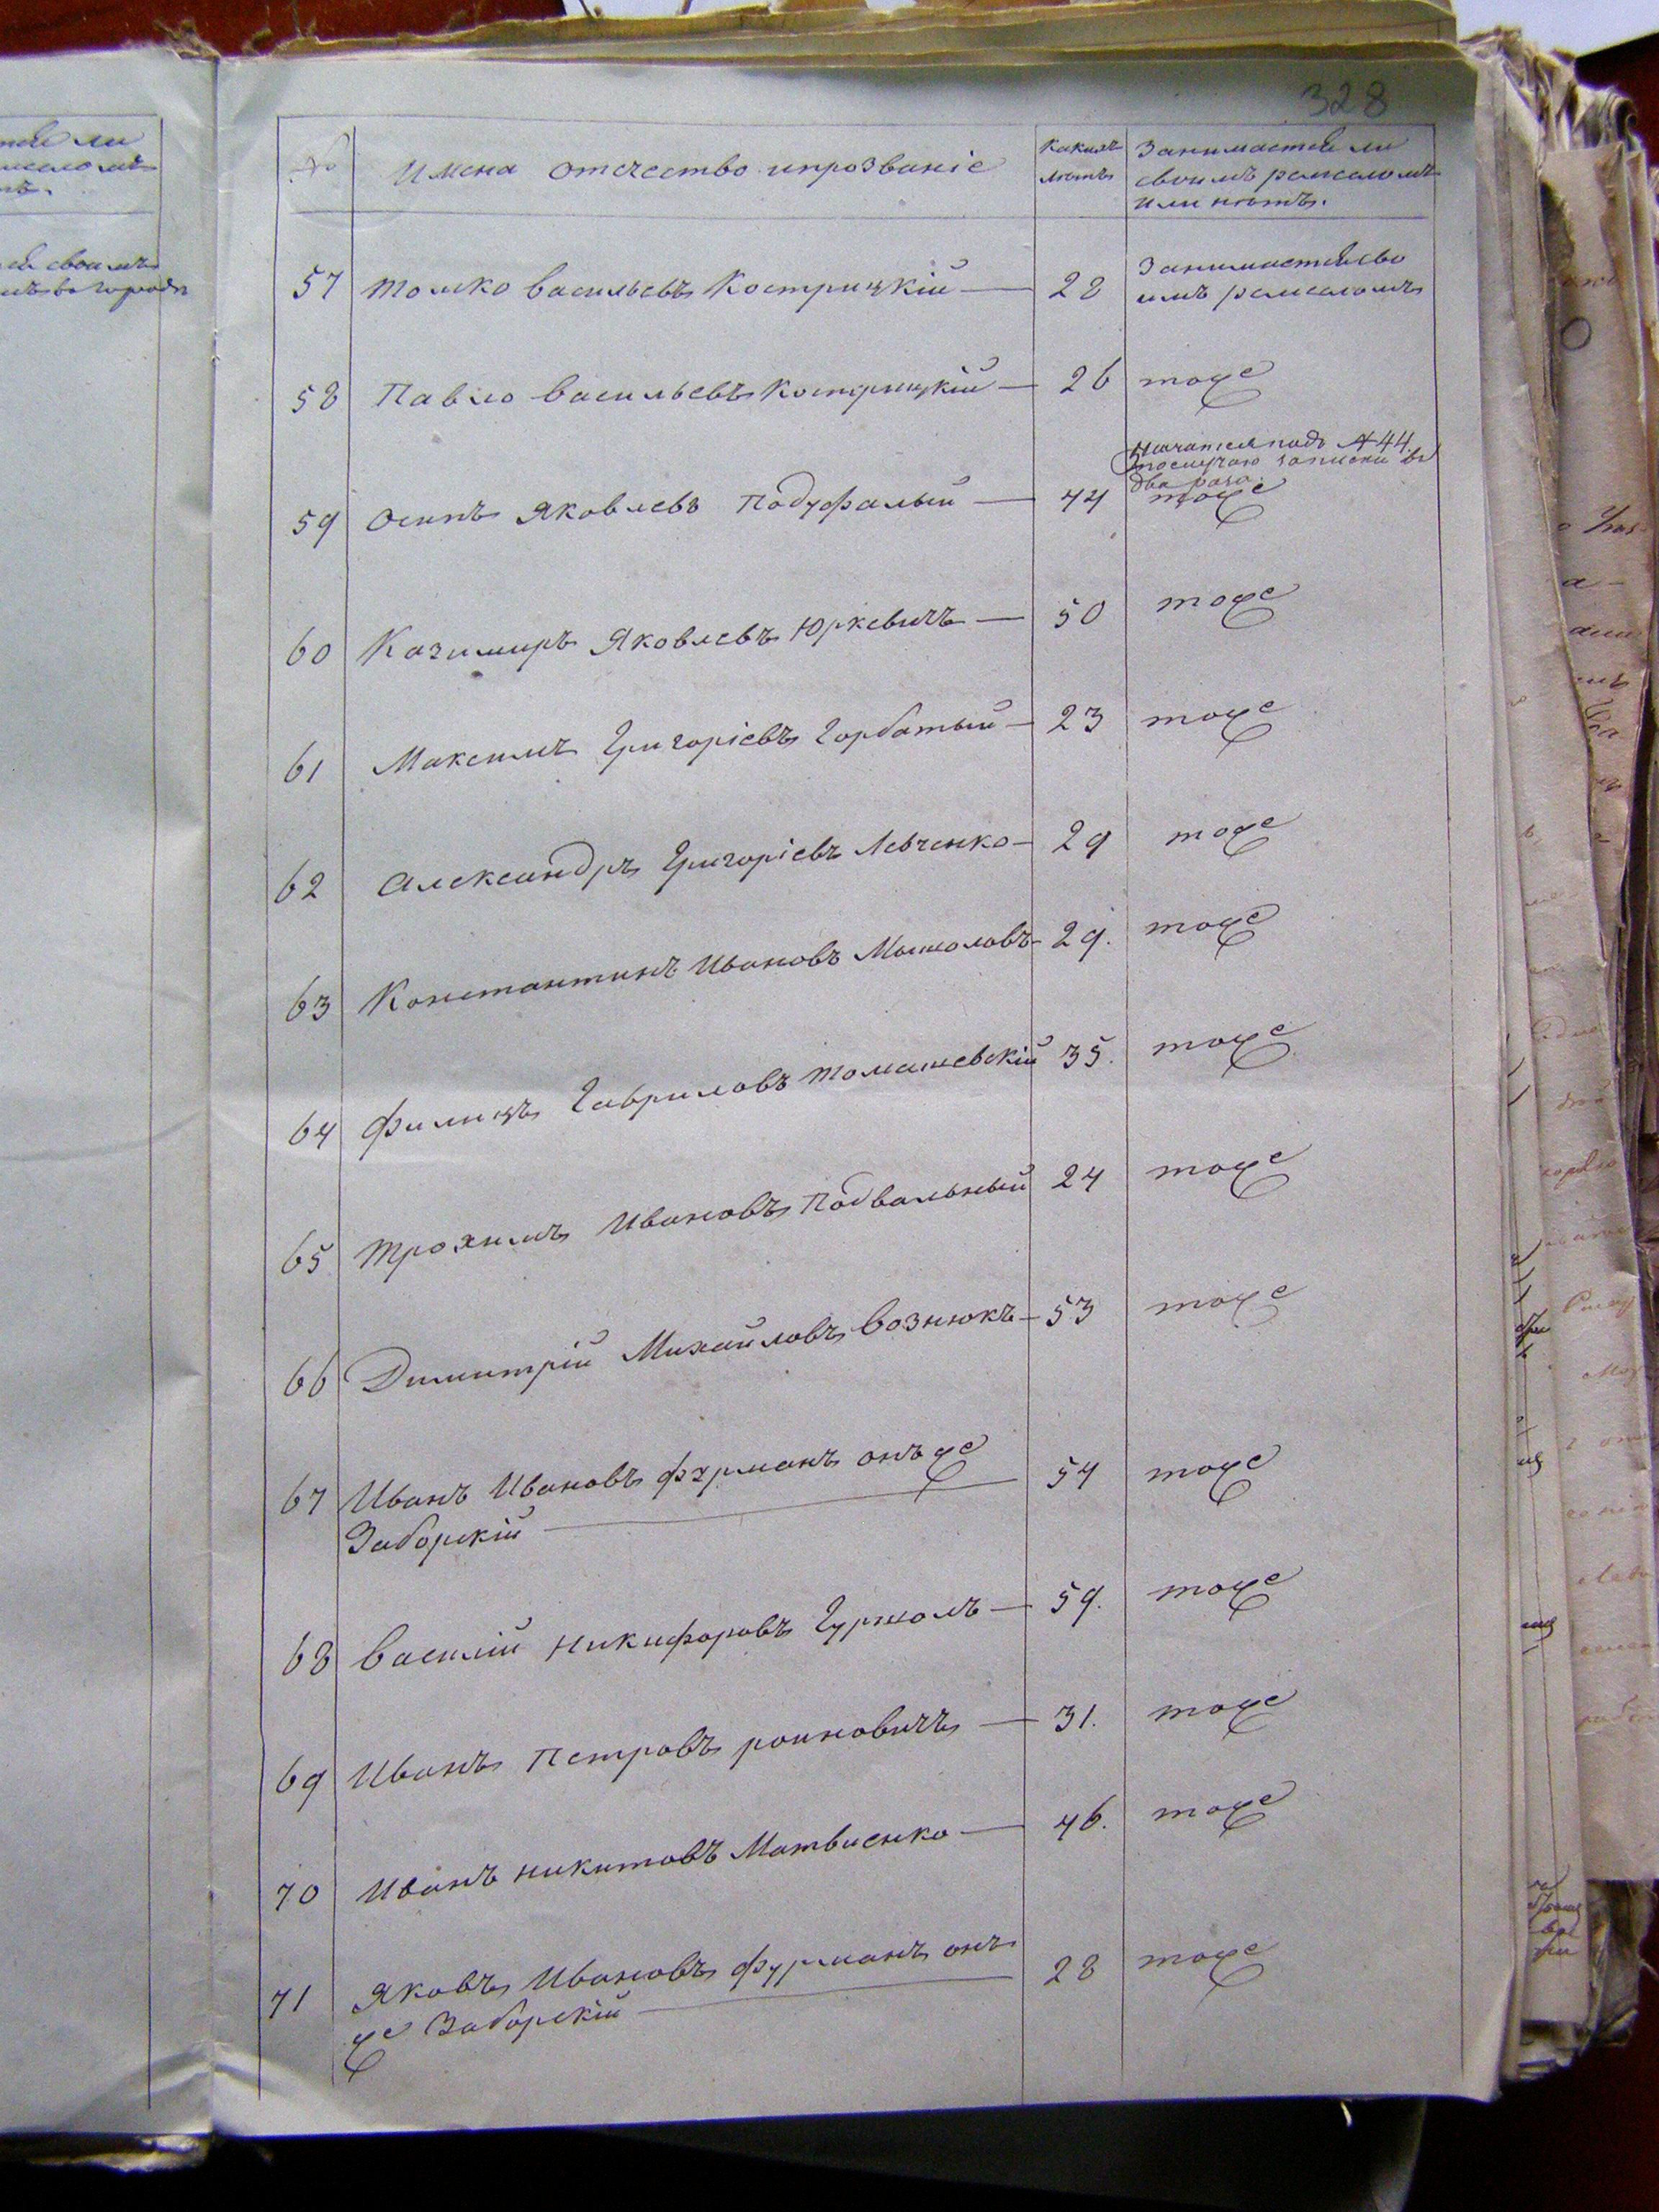 328
№ Имена отечество ипрозваніе
Какихъ лѣтъ
Занимается ли
своимъ ремесломъ
или нѣтъ.
57 Томко Васильевъ Кострицкій — 28 Занимается сво
имъ ремесломъ
58 Павло Васильевъ Кострицкій — 26 тоже
подъ № 44.
по случаю записки въ
два раза.
59 Осипъ Яковлевъ Подуфалый — 44 тоже
60 Казимиръ Яковлевъ Юркевичъ — 50 тоже
61 Максимъ Григоріевъ Горбатый — 23 тоже
62 Александръ Григоріевъ Левченко — 29 тоже
63 Константинъ Ивановъ Мышоловъ — 29. тоже
64 Филипъ Гавриловъ Томашевскій 35. тоже
65 Трохимъ Ивановъ Подвальный 24 тоже
66 Димитрій Михайловъ Вознюкъ — 53 тоже
67 Иванъ Ивановъ Фурманъ онъ же
Заборскій — 54 тоже
68 Василій Никифоровъ — 59. тоже
69 Иванъ Петровъ роиновичъ — 31. тоже
70 Иванъ Никитовъ Матвиенко — 46. тоже
71 Яковъ Ивановъ Фурманъ онъ
же Заборскій — 28 тоже